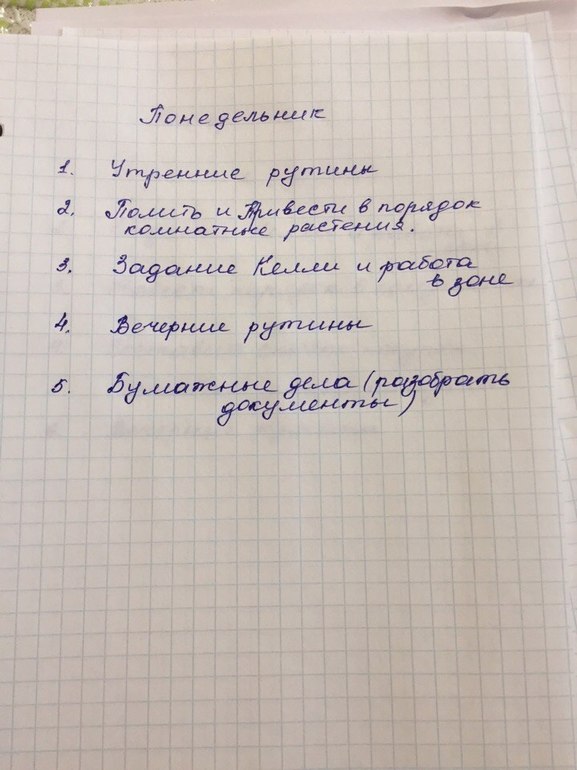 Понедельник
1. Утренние рутины
2. Полить и Привести в порядок
комнатные растения.
3. Задание Келли и работа
в зоне
4. Вечерние рутины
5. Бумажные дела (разобрать
документы)